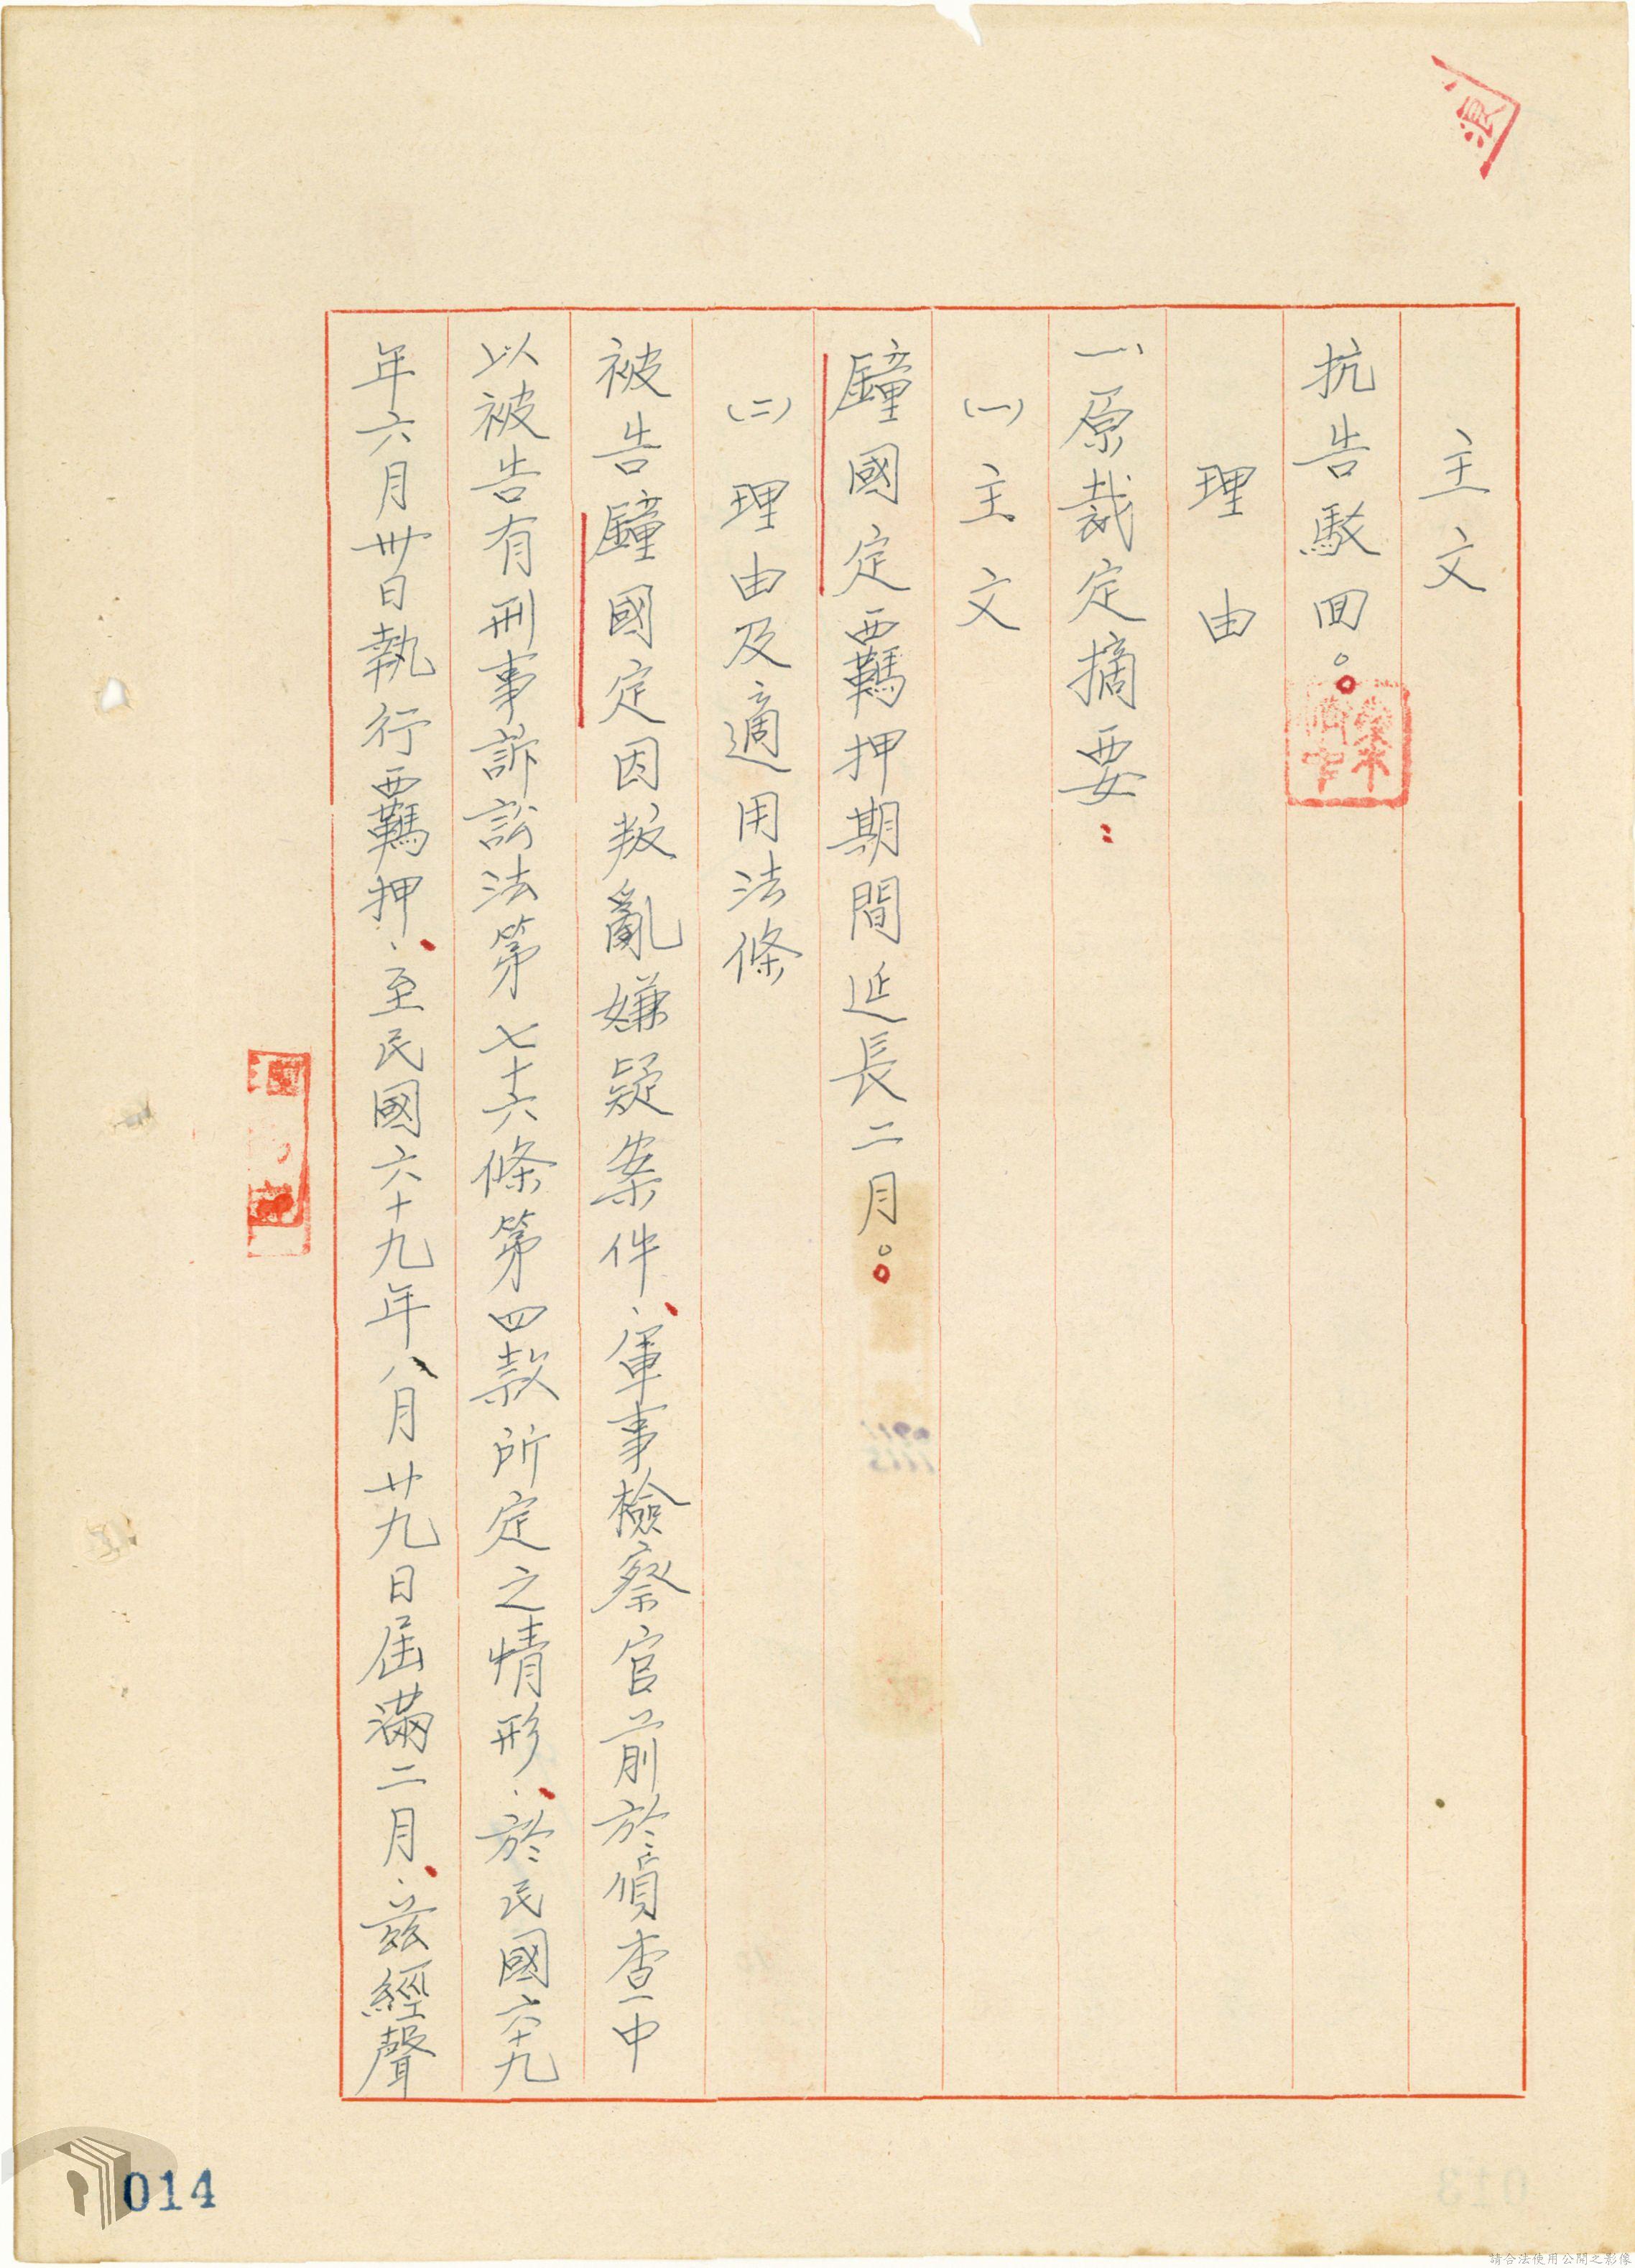 主文
抗告駁回。
理由
一、原裁定摘要：
(一)主文
鐘國定羈押期間延長二月。
(二)理由及適用法條
被告鐘國定因叛亂嫌疑案件、軍事檢察官前於偵查中
以被告有刑事訴訟法第七十六條第四款所定之情形、於民國六十九
年六月卅日執行羈押、至民國六十九年八月廿九日屆滿二月、茲經聲
014
請合法使用公開之影像